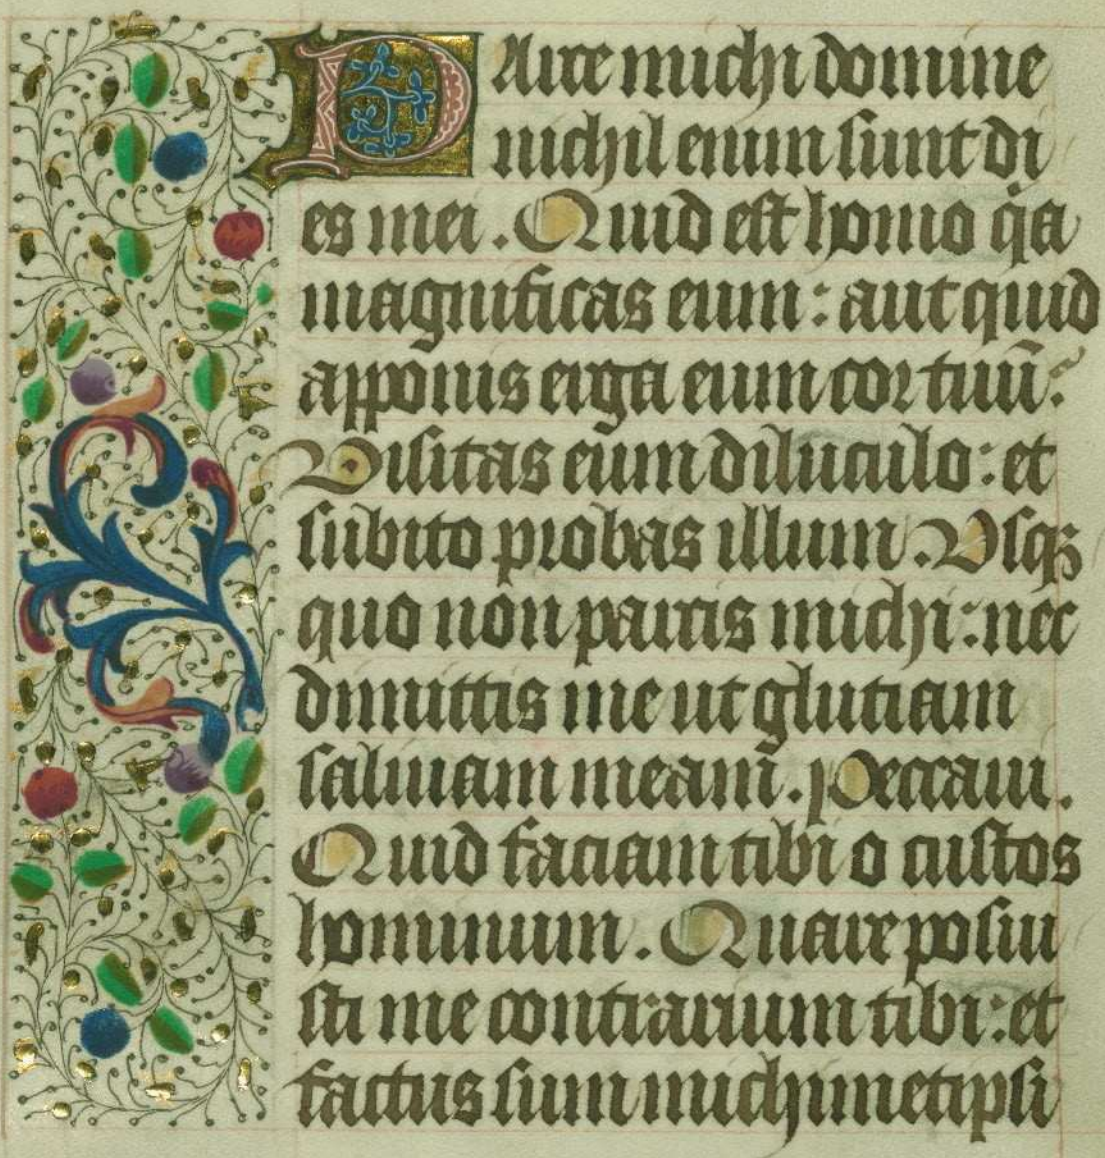 Parce michi domine
nichil enim sunt di
es mei. Quid est homo q̃a
magnificas eum: aut quid
apponis erga eum cor tuũ?
Visitas eum diluculo: et
subito probas illum. Vsqꝫ
quo non parcis michi: nec
dimittis me ut glutiam
saliuam meam. Peccaui.
Quid faciam tibi o custos
hominum. Quare posiu
sti me contrarium tibi: et
factus sum michimetipsi